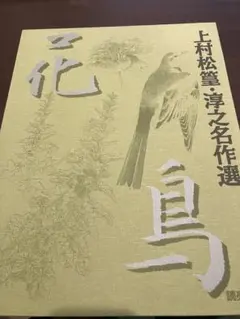 花鳥
上村松篁・淳之名作選